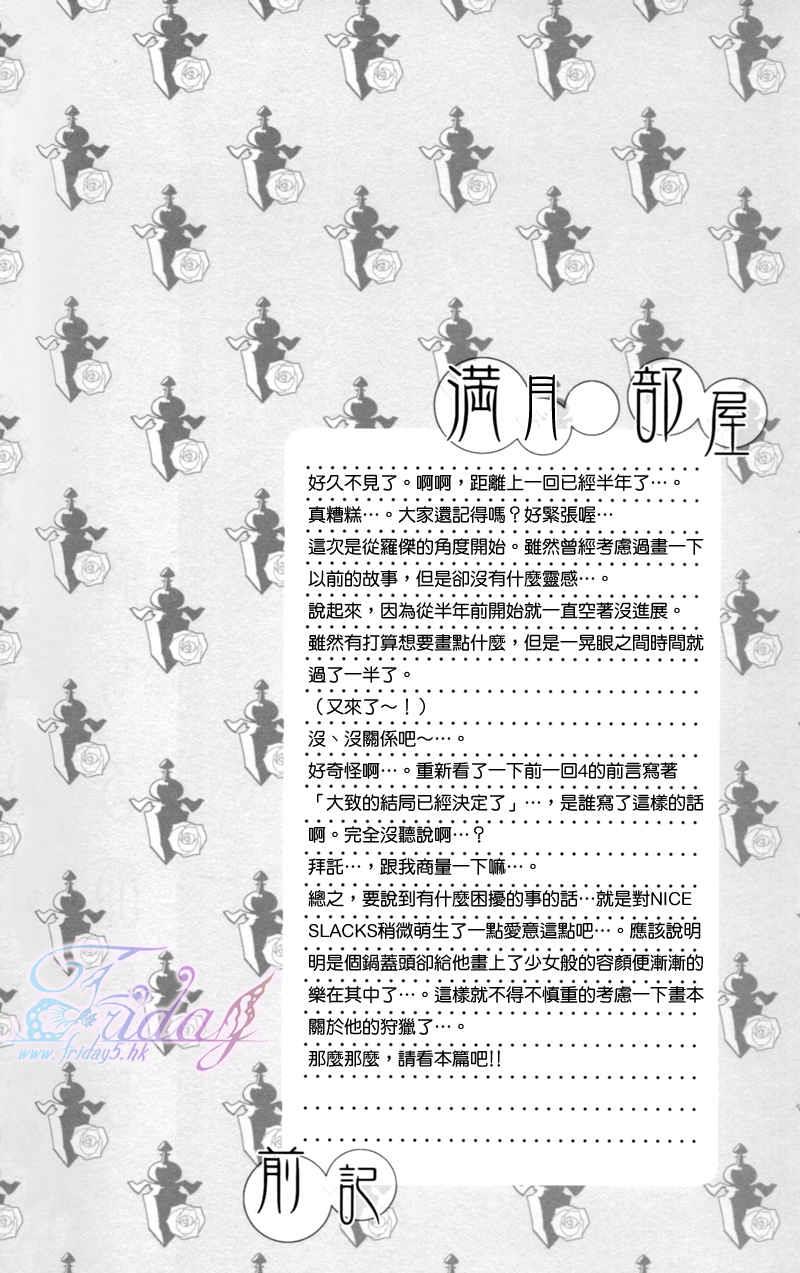 満月の部屋
好久不見了。啊啊，距離上一回已經半年了…。
真糟糕…。大家還記得嗎？好緊張喔…
這次是從羅傑的角度開始。雖然曾經考慮過畫一下
以前的故事，但是卻沒有什麼靈感…。
說起來，因為從半年前開始就一直空著沒進展。
雖然有打算想要畫點什麼，但是一晃眼之間時間就
過了一半了。
（又來了～！）
沒、沒關係吧～…。
好奇怪啊…。重新看了一下前一回4的前言寫著
「大致的結局已經決定了」…，是誰寫了這樣的話
啊。完全沒聽說啊…？
拜託…，跟我商量一下嘛…。
總之，要說到有什麼困擾的事的話…就是對NICE
SLACKS稍微萌生了一點愛意這點吧…。應該說明
明是個鍋蓋頭卻給他畫上了少女般的容顏便漸漸的
樂在其中了…。這樣就不得不慎重的考慮一下畫本
關於他的狩獵了…。
那麼那麼，請看本篇吧!!
Friday
www.friday5.hk
前記